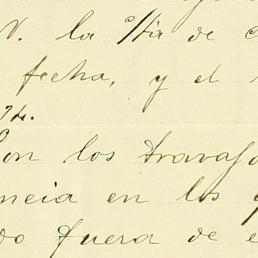 N. la c/ta de c
fecha, y el
94.
Con los trava
ncia en los
do fuera de e